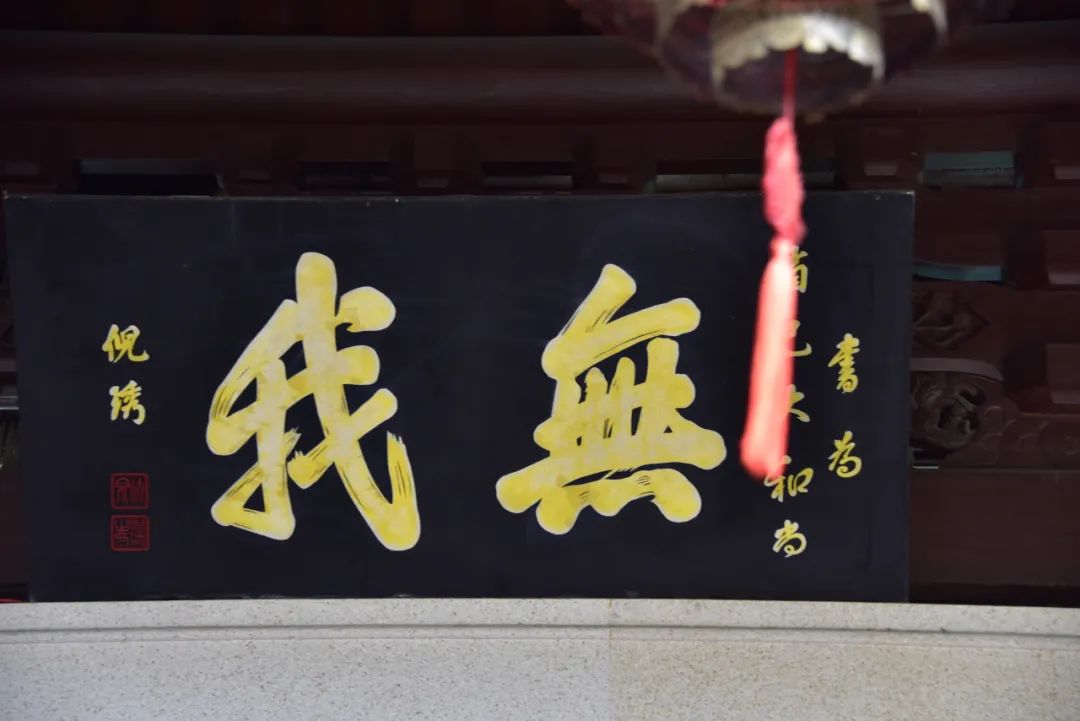 書為
大和尚
無我
倪琇